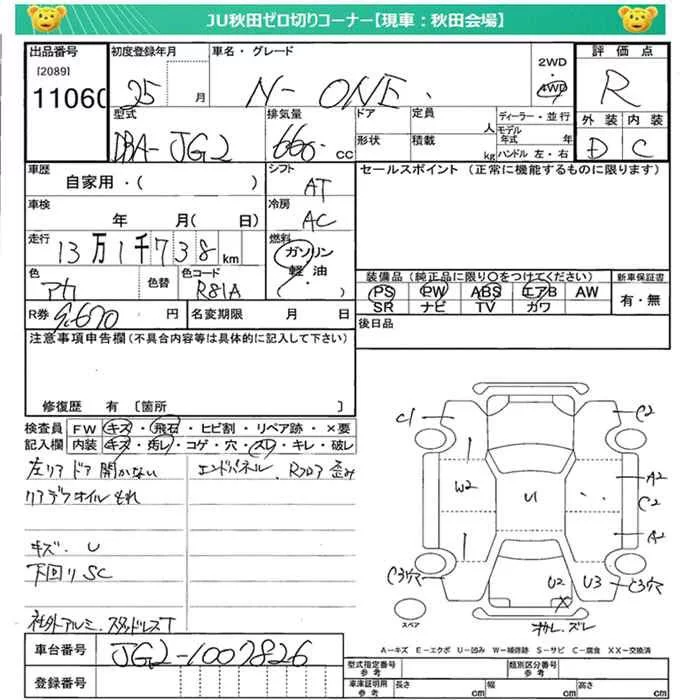 JU秋田ゼロ切りコーナー【現車：秋田会場】
出品番号 初度登録年月 車名・グレード 2WD 評価点
[2089]
11060 25 月 N-ONE. 4WD R
型式 排気量 ドア 定員 ディーラー・並行 外装 内装
DBA-JG2 660 cc 人 モデル年式 年 D C
形状 積載 kg ハンドル 左・右
車歴 シフト セールスポイント (正常に機能するものに限ります)
自家用・( ) AT
車検 冷房
年 月( 日) AC
走行 燃料
13万1千738km ガソリン
軽油
( )
色 色替 色コード 装備品 (純正品に限り○をつけてください) 新車保証書
アカ R81A PS PW ABS エアB AW 有・無
SR ナビ TV カワ
R券 9,670 円 名変期限 月 日 後日品
注意事項申告欄 (不具合内容等は具体的に記入して下さい)
修復歴 有 [箇所 ]
検査員 FW キズ・飛石・ヒビ割・リペア跡・×要
記入欄 内装 キズ・汚レ・コゲ・穴・スレ・キレ・破レ
左リア ドア 開かない エンドパネル、Rフロア 歪み
リアデフオイルもれ
キズ. U
下回り SC
社外アルミ.スタッドレスT
C1 C2
W2 U A2
C2
A2
C3穴 U2 U3 C3穴
X
スペア
A－キズ E－エクボ U－凹み W－補修跡 S－サビ C－腐食 XX－交換済
車台番号 JG2-1007826
登録番号
型式指定番号 参考 類別区分番号 参考
車庫証明用 参考 長さ cm 幅 cm 高さ cm